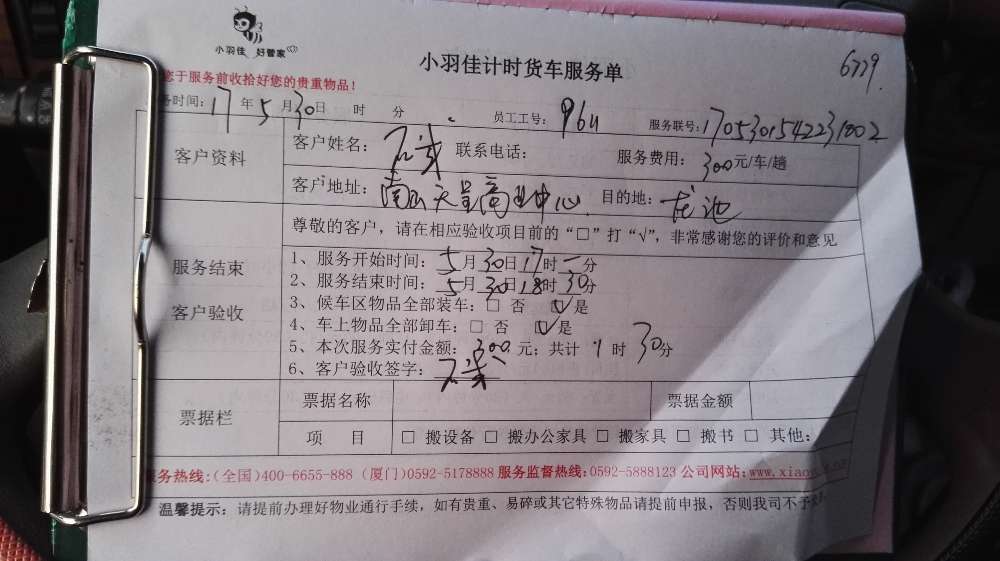 小羽佳 好管家
小羽佳计时货车服务单
6779
您于服务前收拾好您的贵重物品!
务时间: 17 年 5 月 30 日 时 分 员工工号: 服务联号: 1705301542231002
客户资料
客户姓名: 联系电话: 服务费用: 300 元/车/趟
客户地址: 天呈商业中心 目的地: 龙池
服务结束
客户验收
尊敬的客户，请在相应验收项目前的“□”打“√”，非常感谢您的评价和意见
1、服务开始时间: 5 月 30 日 17 时 一 分
2、服务结束时间: 5 月 30 日 18 时 30 分
3、候车区物品全部装车: □ 否 √是
4、车上物品全部卸车: □ 否 √是
5、本次服务实付金额: 300 元; 共计 1 时 30 分
6、客户验收签字:
票据栏
票据名称 票据金额
项 目 □ 搬设备 □ 搬办公家具 □ 搬家具 □ 搬书 □ 其他:
服务热线:(全国)400-6655-888 (厦门)0592-5178888 服务监督热线:0592-5888123 公司网站:www.xiao
温馨提示: 请提前办理好物业通行手续，如有贵重、易碎或其它特殊物品请提前申报，否则我司不予